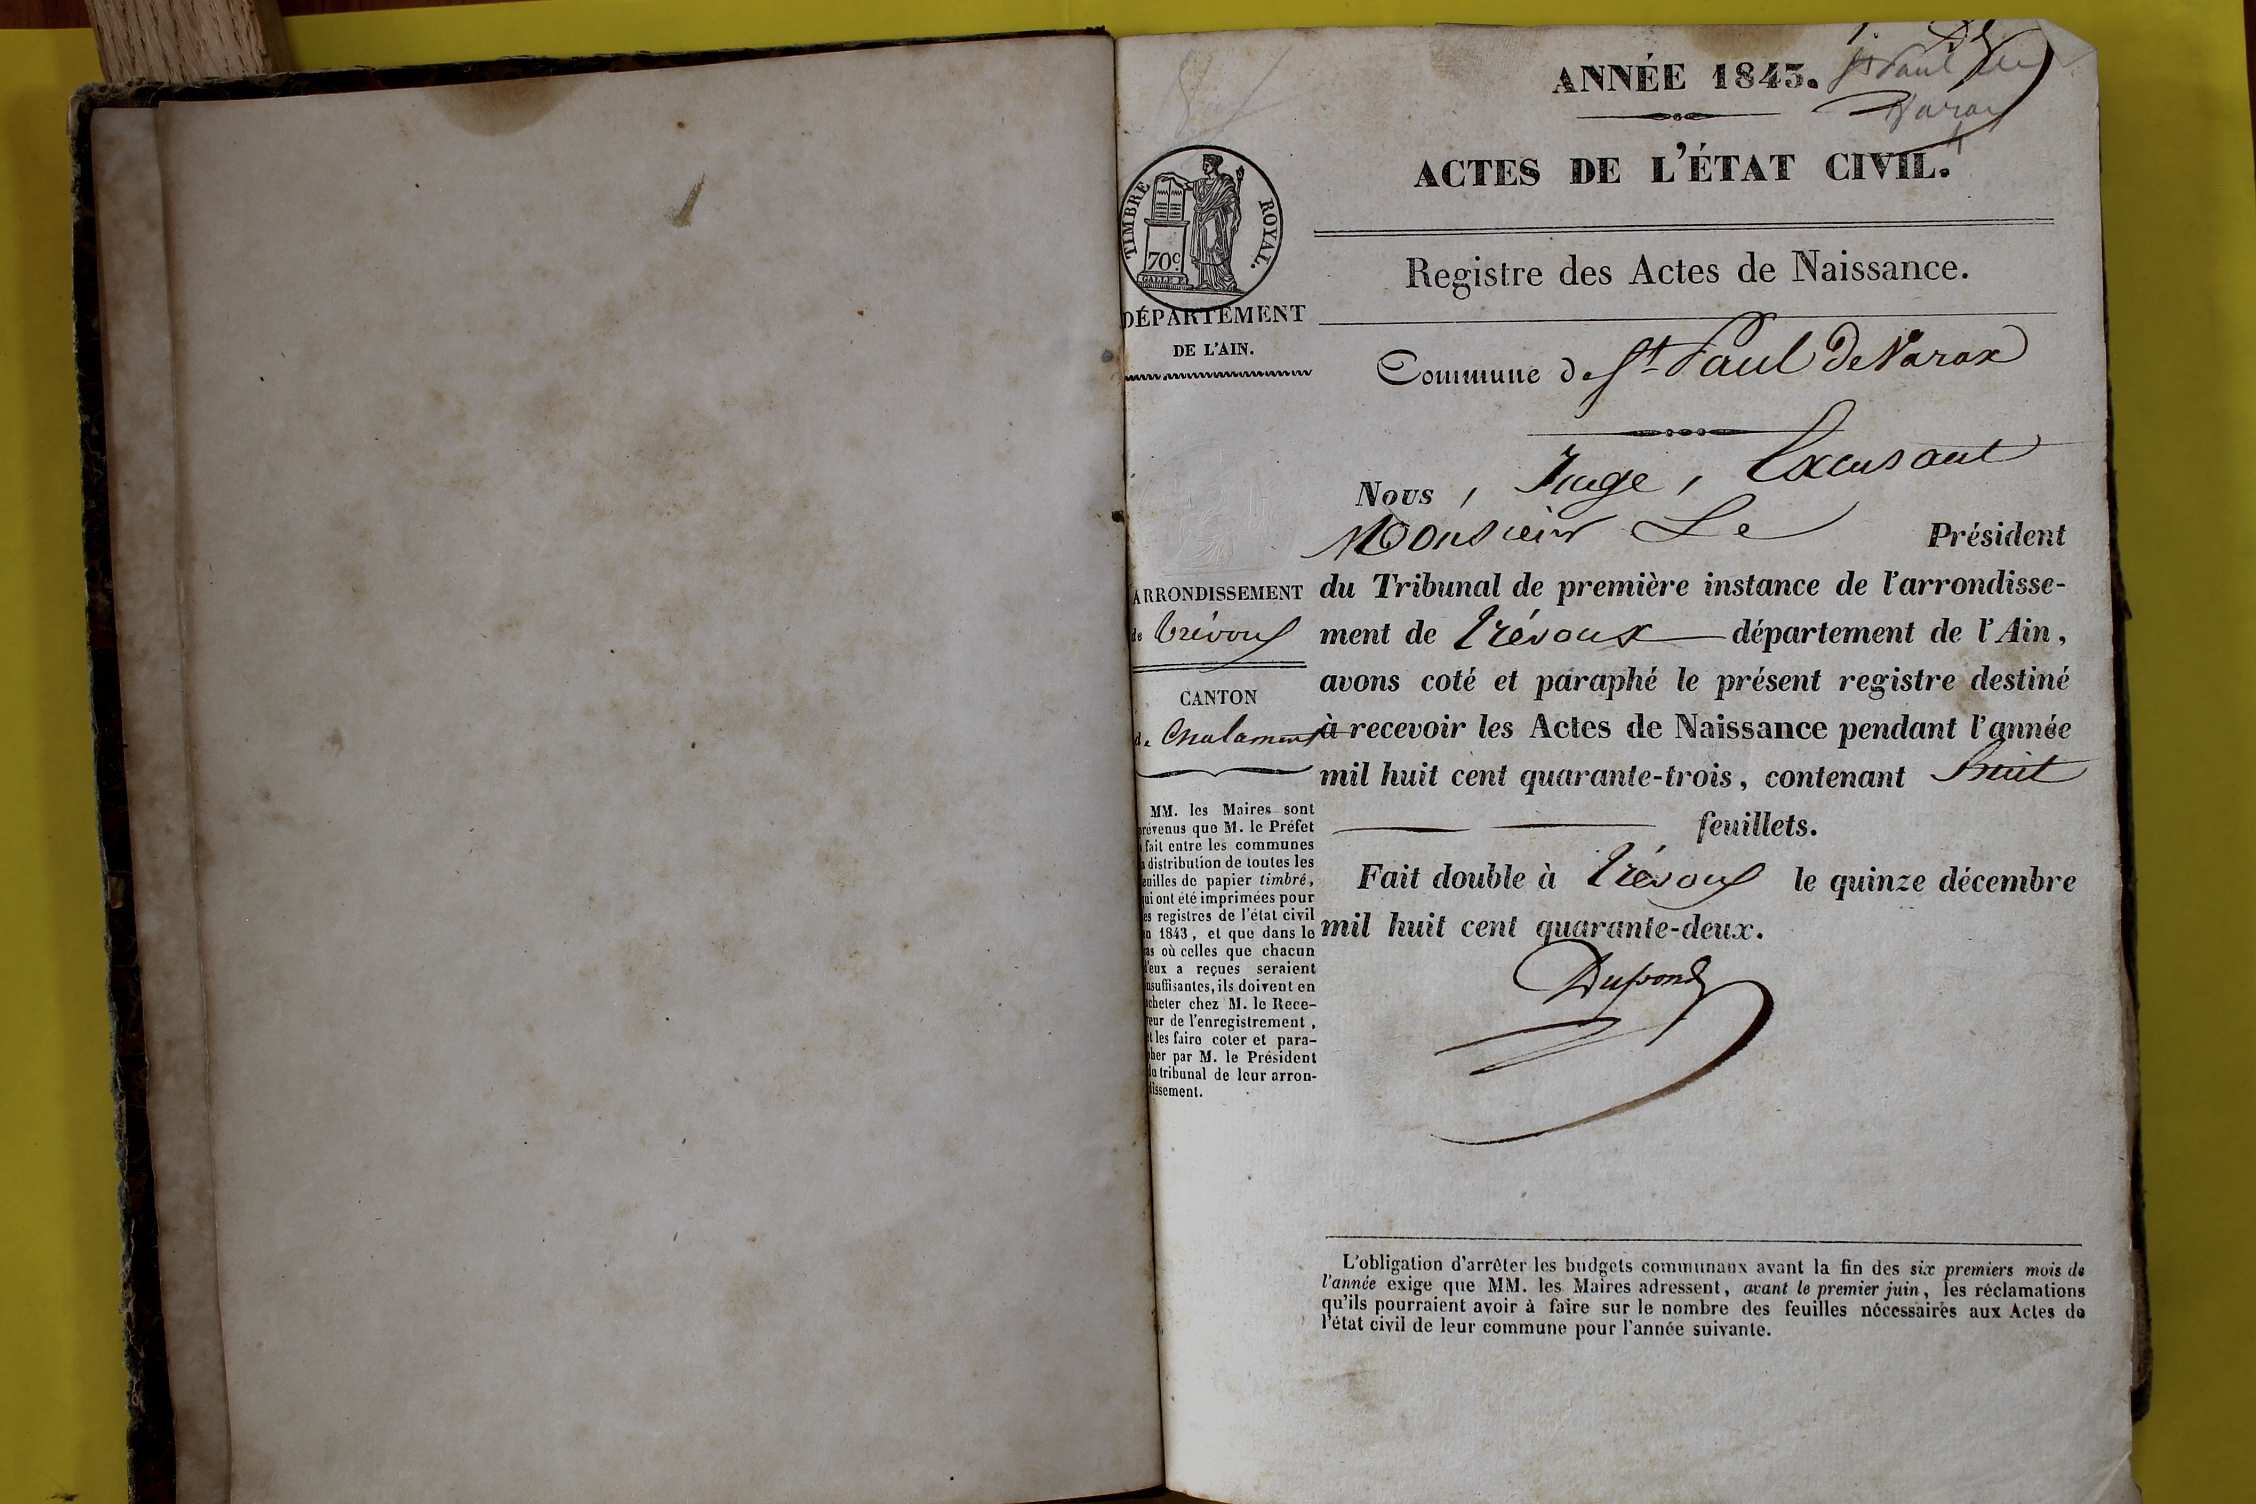 ANNÉE 1843.
St Paul de
Varax
ACTES DE L'ÉTAT CIVIL.
TIMBRE ROYAL.
70c
Registre des Actes de Naissance.
DÉPARTEMENT
DE L'AIN.
Commune de St Paul De Varax
Nous, Juge, Excusant
Monsieur Le Président
ARRONDISSEMENT
de Trévoux
CANTON
de Chalamont
du Tribunal de première instance de l'arrondisse-
ment de Trévoux département de l'Ain,
avons coté et paraphé le présent registre destiné
à recevoir les Actes de Naissance pendant l'année
mil huit cent quarante-trois, contenant huit
feuillets.
Fait double à Trévoux le quinze décembre
mil huit cent quarante-deux.
Dupond
MM. les Maires sont
prévenus que M. le Préfet
a fait entre les communes
la distribution de toutes les
feuilles de papier timbré,
qui ont été imprimées pour
les registres de l'état civil
en 1843, et que dans le
cas où celles que chacun
d'eux a reçues seraient
insuffisantes, ils doivent en
acheter chez M. le Rece-
veur de l'enregistrement,
et les faire coter et para-
pher par M. le Président
du tribunal de leur arron-
dissement.
L'obligation d'arrêter les budgets communaux avant la fin des six premiers mois de
l'année exige que MM. les Maires adressent, avant le premier juin, les réclamations
qu'ils pourraient avoir à faire sur le nombre des feuilles nécessaires aux Actes de
l'état civil de leur commune pour l'année suivante.